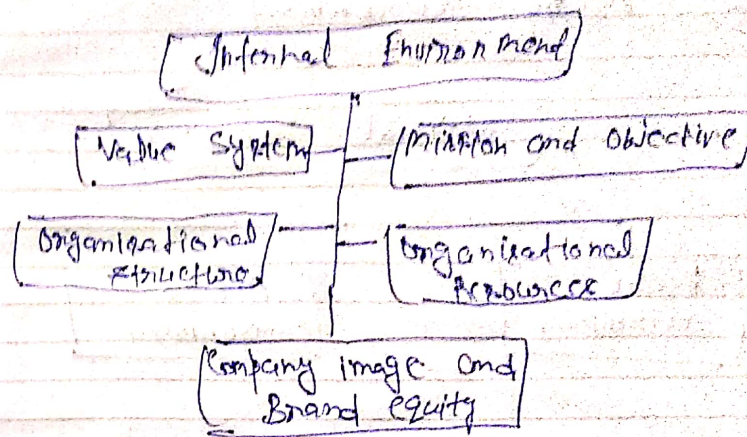 Internal Environment
Value System
Mission and Objective
Organisational
structure
Organisational
Resources
Company image and
Brand equity